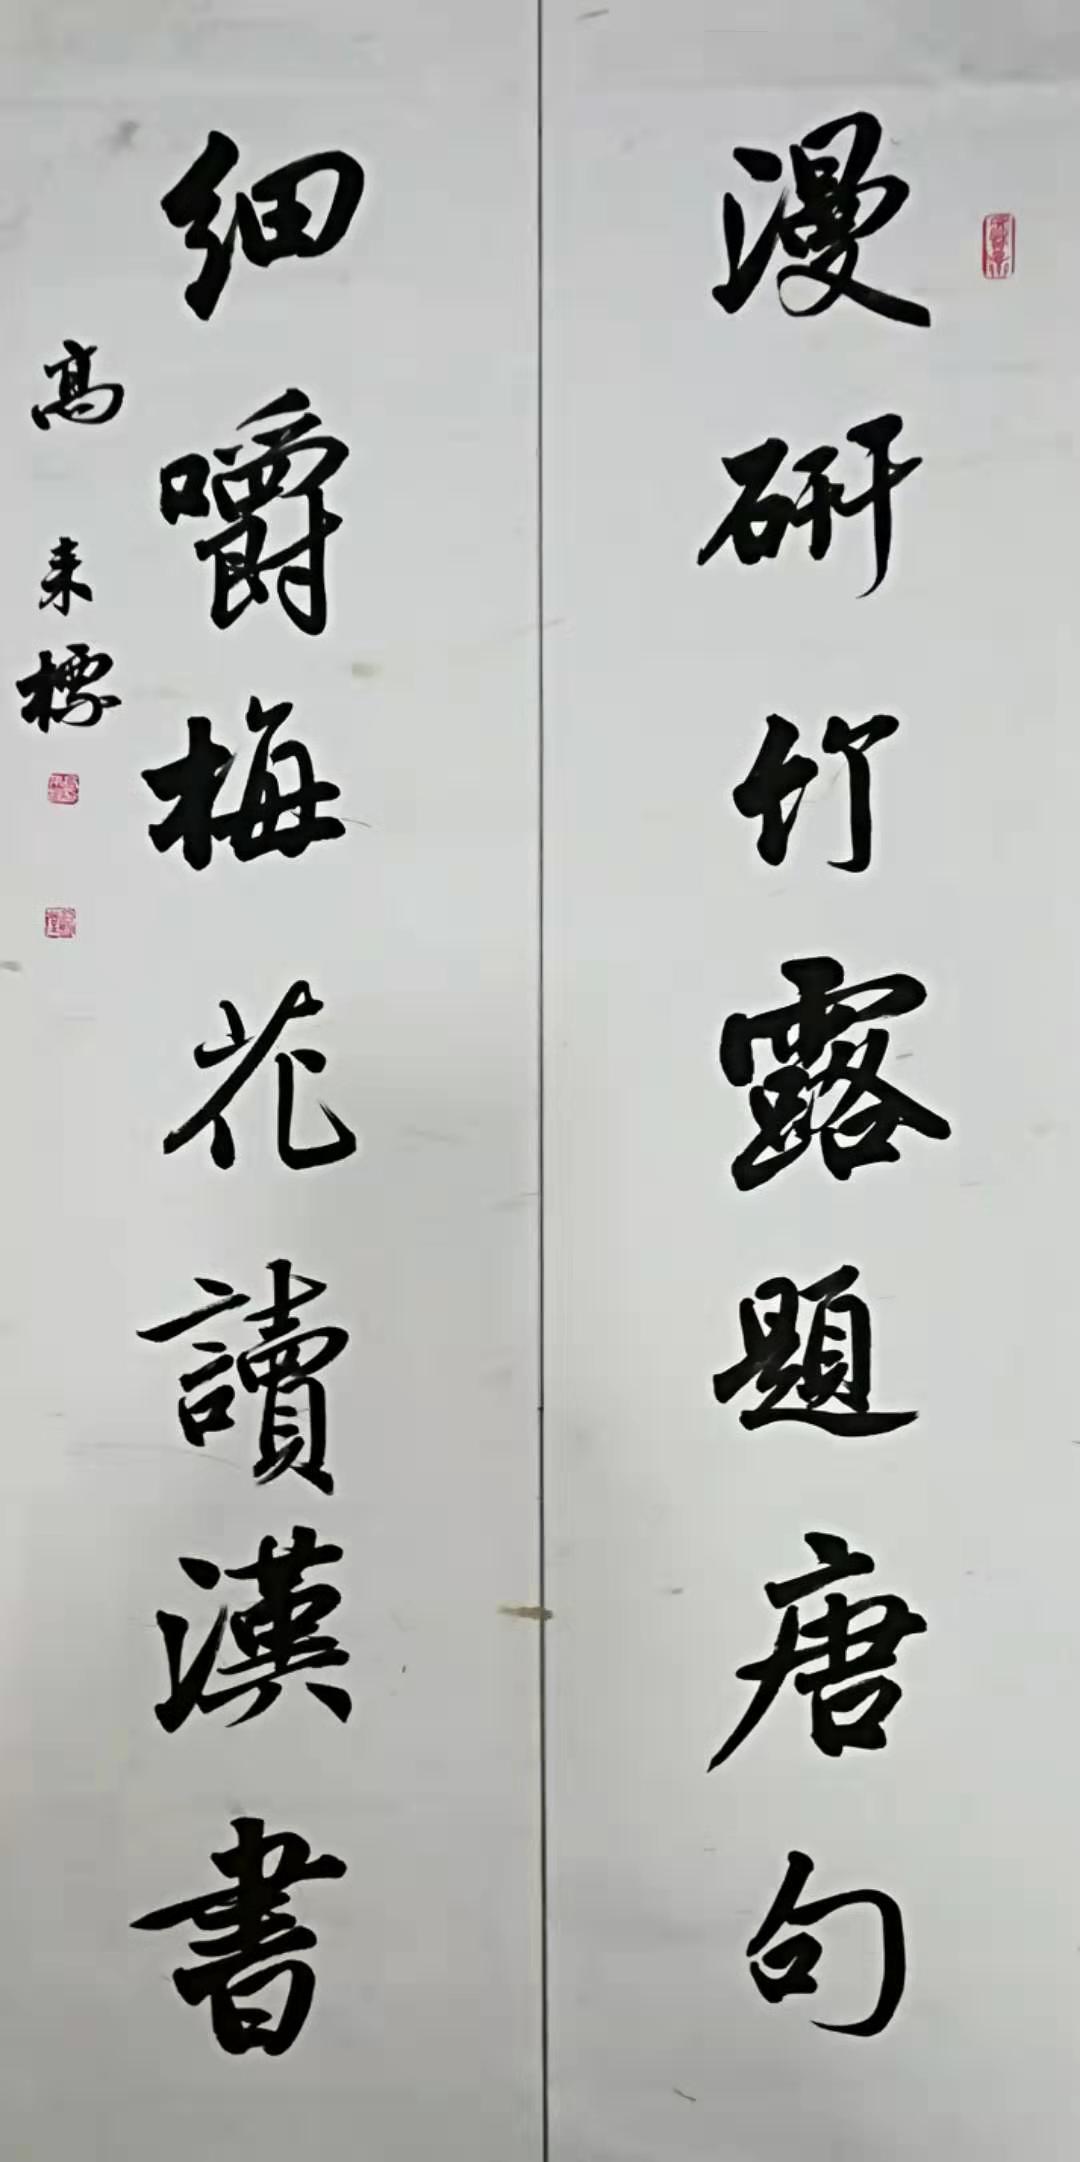 漫研竹露題唐句
細嚼梅花讀漢書
高來標